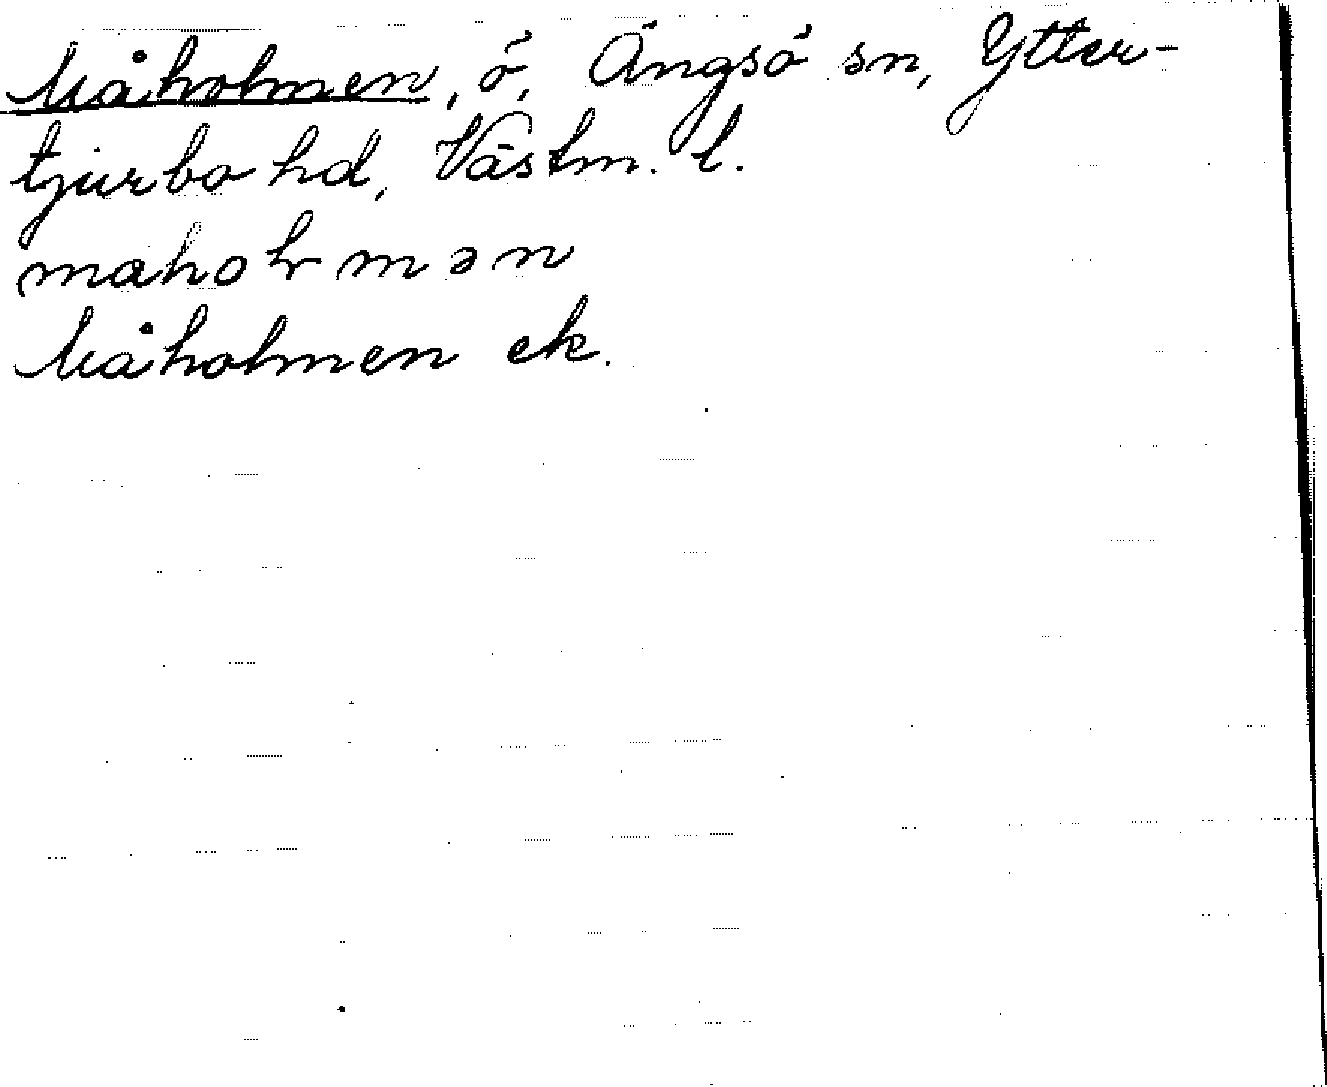 Måholmen, ö, Ängsö sn, Ytter-
tjurbo hd, Västm. l.
mahoɫmən
Måholmen ek.